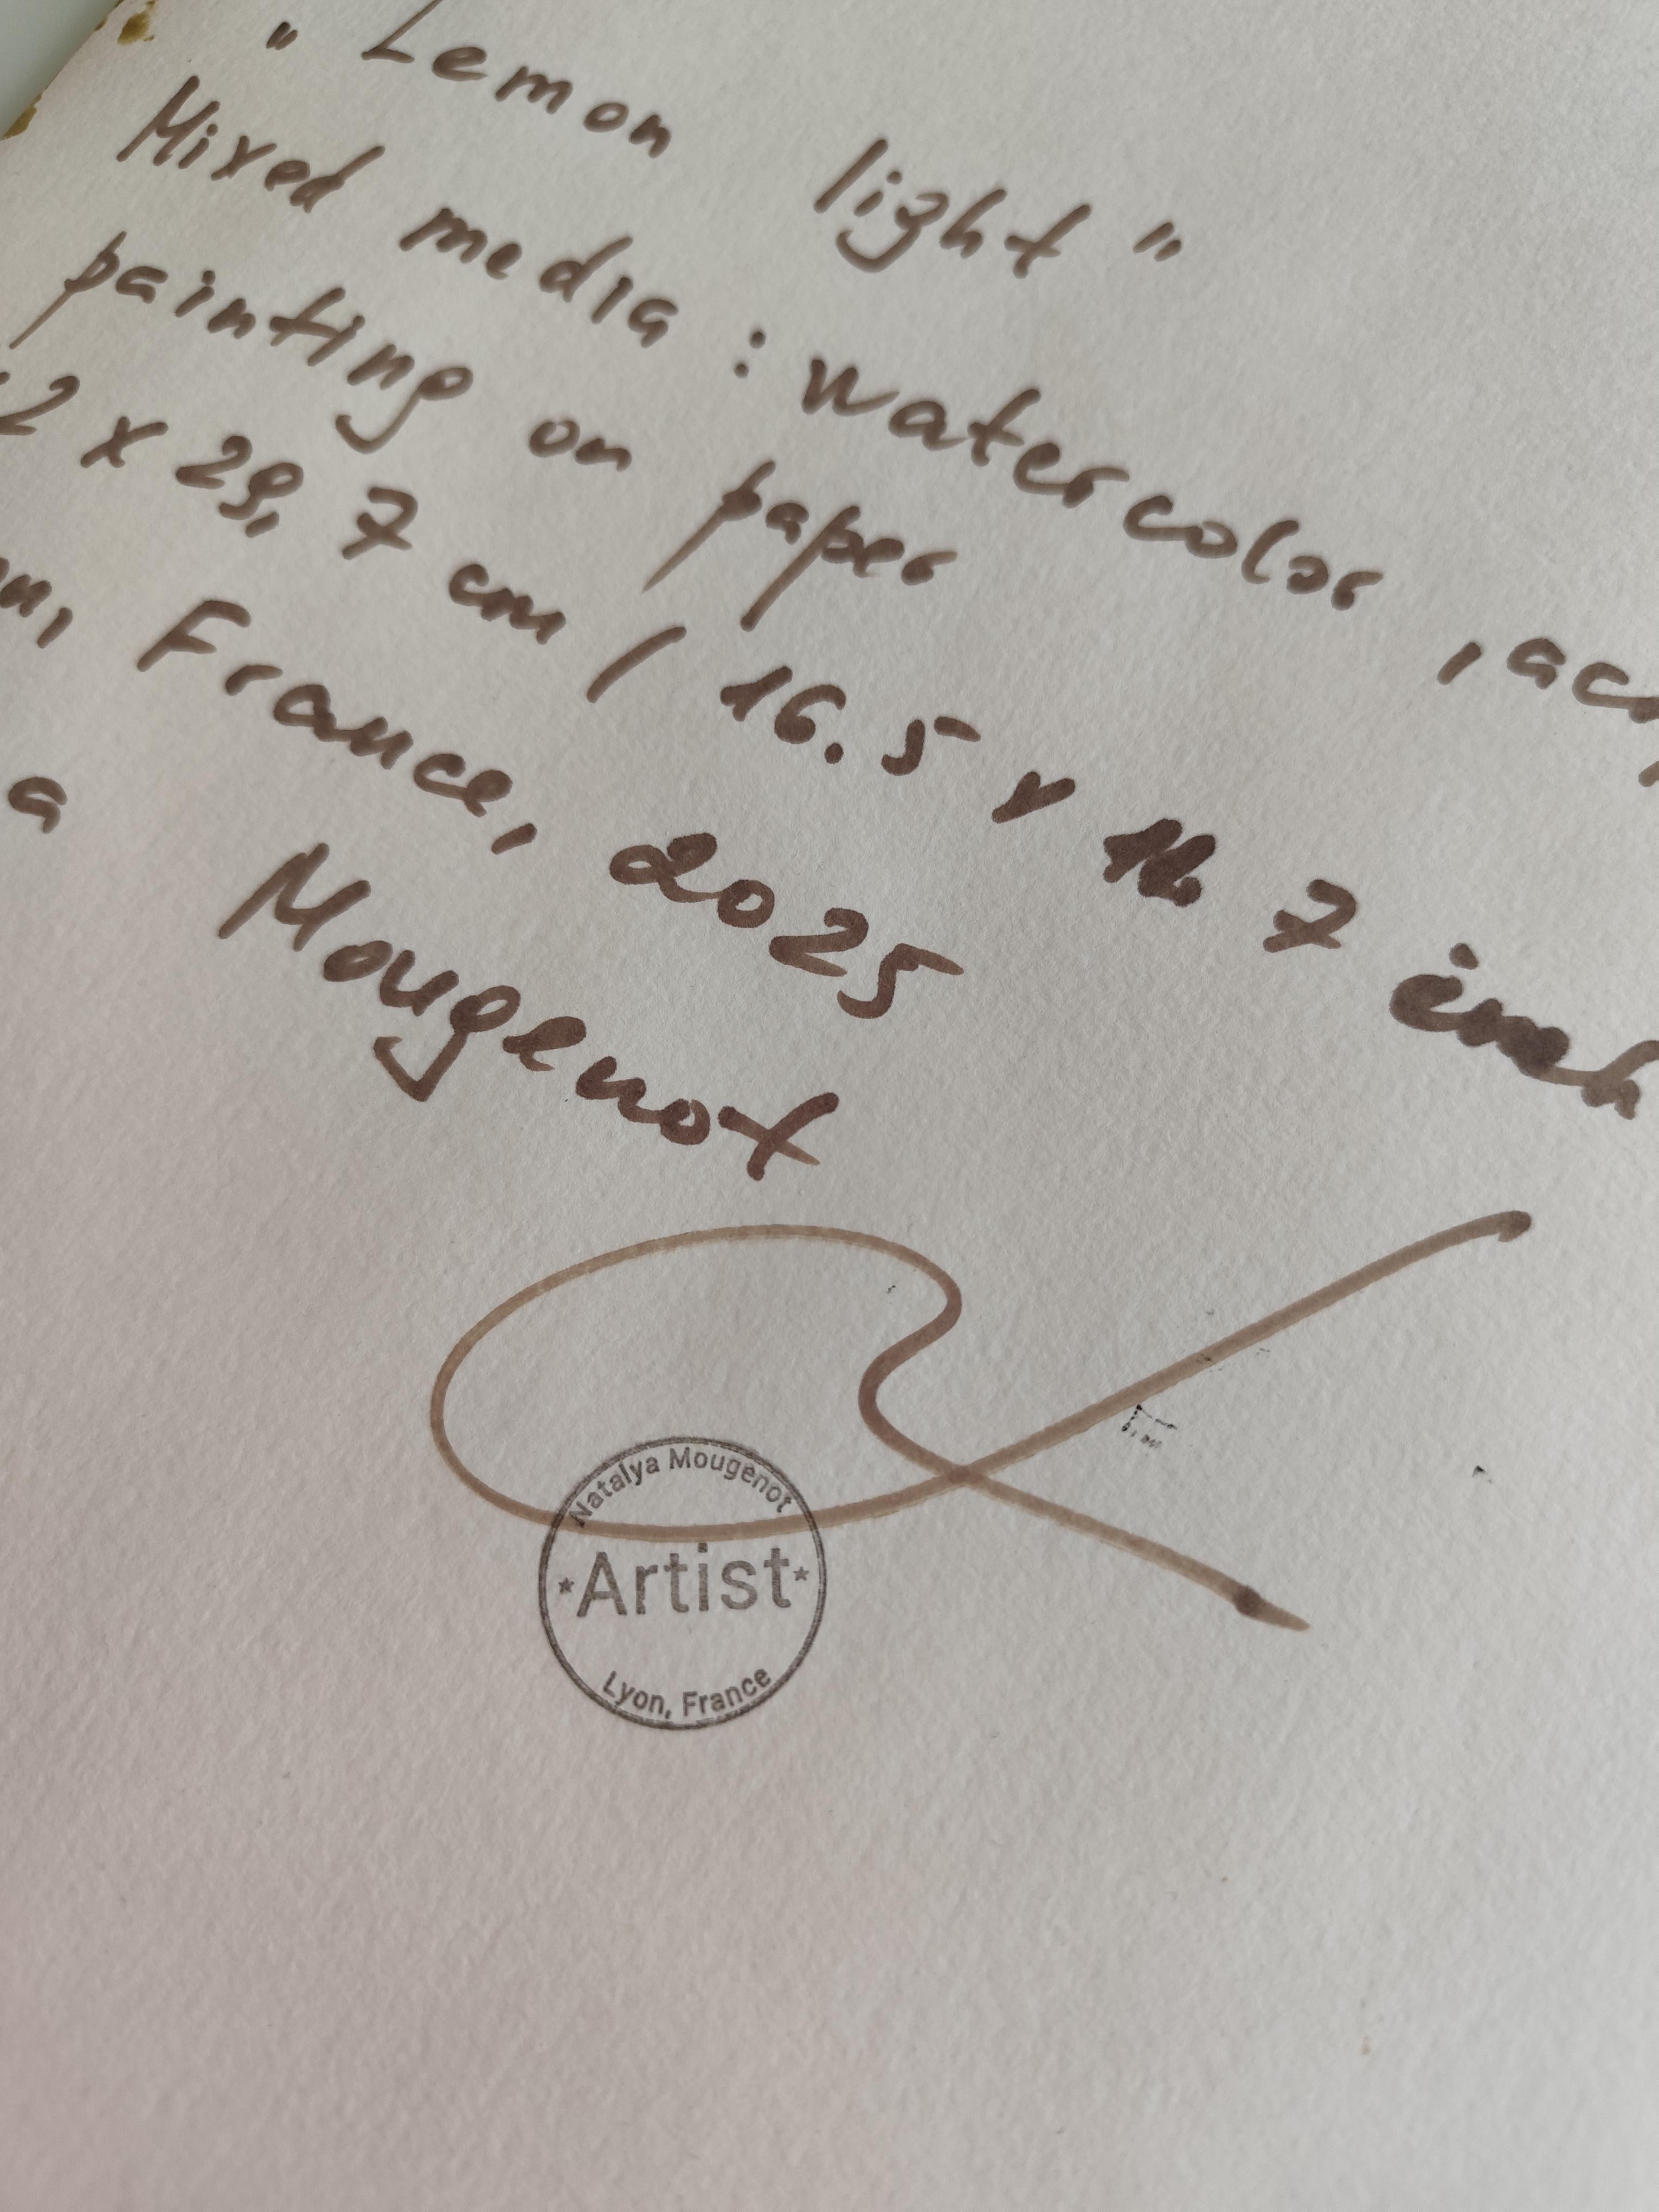 " Lemon light "
Mixed media : watercolor , ac
painting on paper
2 x 29, 7 cm / 16. 5 x 7 inch
France, 2025
a Mougenot
Natalya Mougenot
Artist
Lyon, France